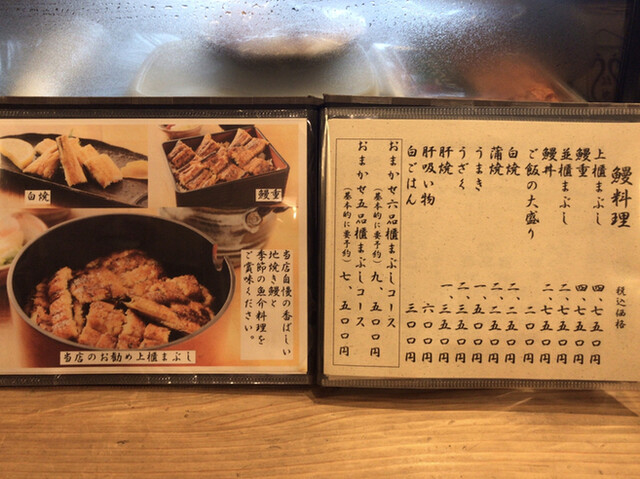 白焼
鰻重
当店自慢の香ばしい
地焼き鰻と
季節の魚介料理を
ご賞味ください。
当店のお勧め上櫃まぶし
鰻料理 税込価格
上櫃まぶし 四、七五〇円
鰻重 四、七五〇円
並櫃まぶし 二、七五〇円
鰻丼 二、七五〇円
ご飯の大盛り 二〇〇円
白焼 二、五〇〇円
蒲焼 二、五〇〇円
うまき
うざく
肝焼 一、三五〇円
肝吸い物 六〇〇円
白ごはん 三〇〇円
おまかせ六品櫃まぶしコース
(基本的に要予約) 九、五〇〇円
おまかせ五品櫃まぶしコース
(基本的に要予約) 七、五〇〇円